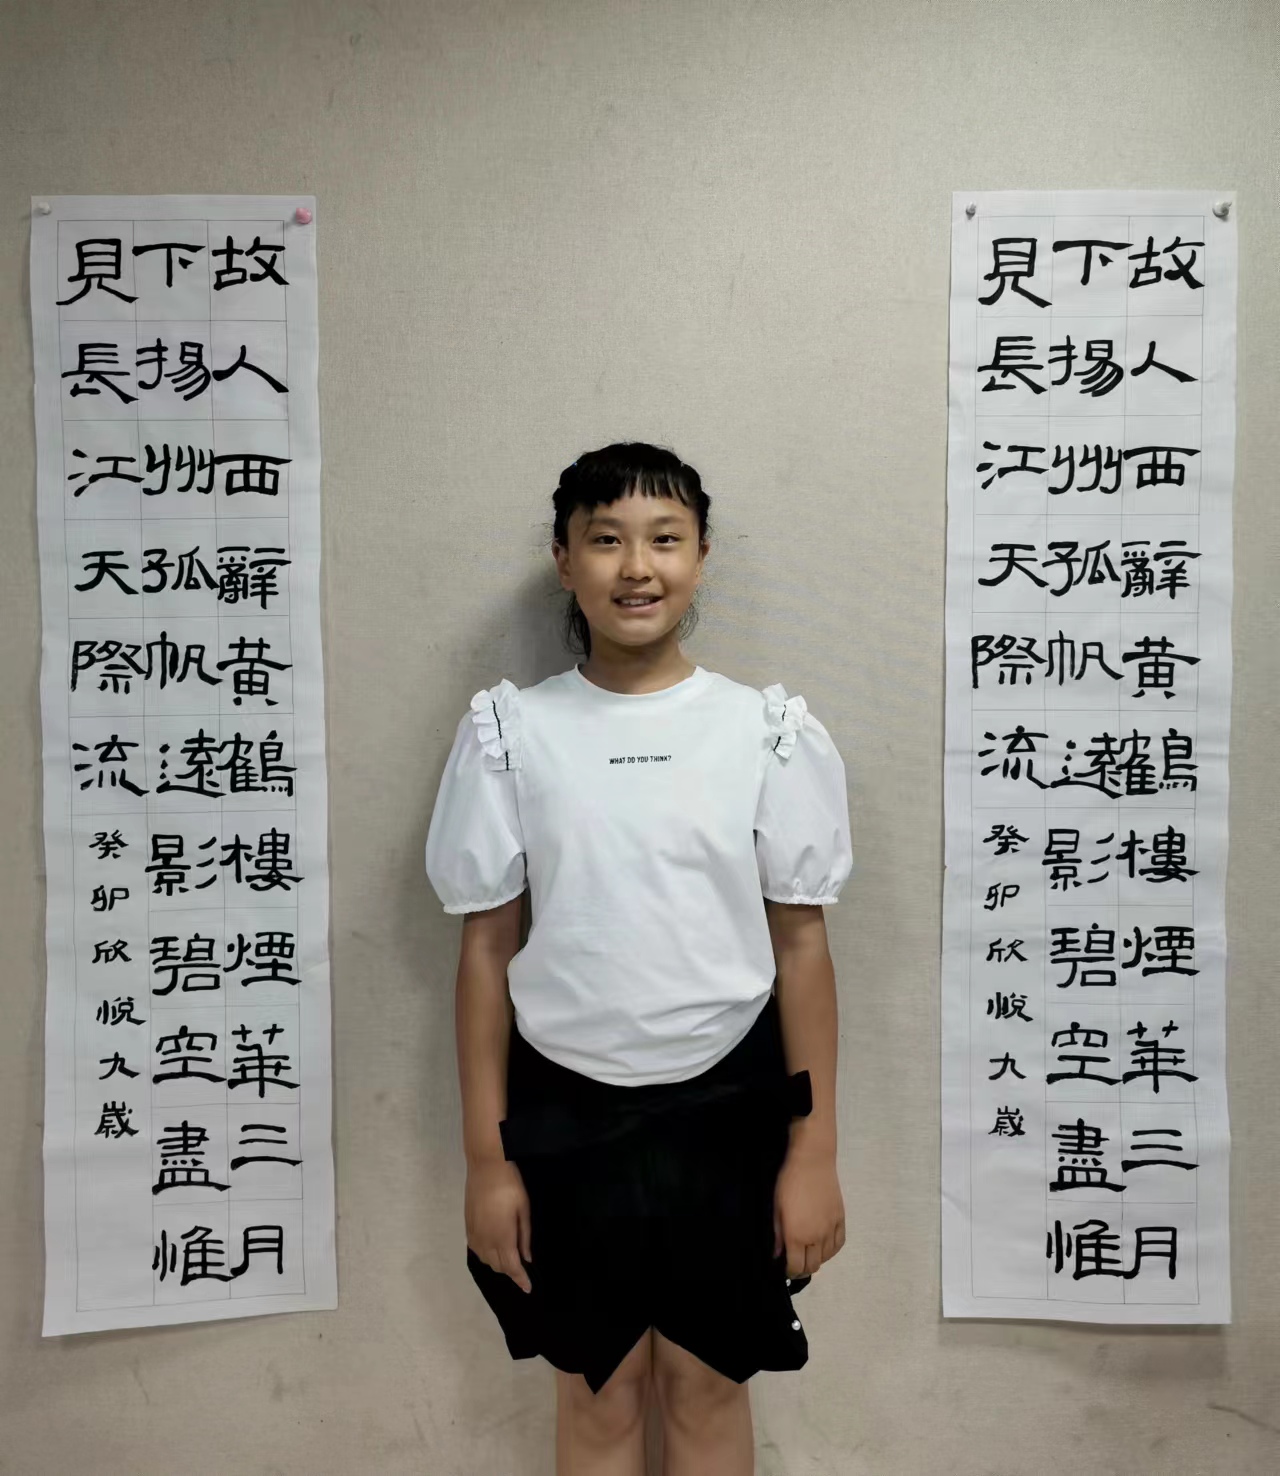 故人西辭黄鶴樓煙華三月
下揚州孤帆遠影碧空盡惟
見長江天際流
癸卯欣悅九歲
WHAT DO YOU THINK?
故人西辭黄鶴樓煙華三月
下揚州孤帆遠影碧空盡惟
見長江天際流
癸卯欣悅九歲